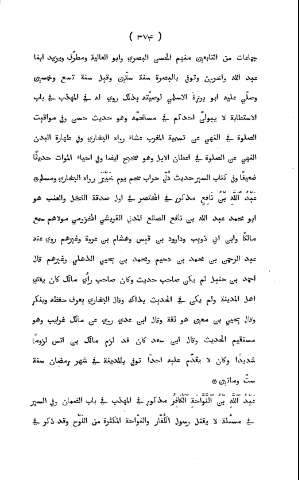 ( ٣٧٤ )
جماعات من التابعين منهم الحسن البصرى وابو العالية ومطرف ويزيد ابنا
عبد الله واخرون وتوفى بالبصرة سنة ستين وقيل سنة تسع وخمسين
وصلى عليه ابو برزة الاسلمى لوصيته بذلك روى له فى المهذب فى باب
الاستطابة لا يبولن احدكم فى مستحمه وهو حديث حسن وفى مواقيت
الصلوة فى النهى عن تسمية المغرب عشاء رواه البخارى وفى طهارة البدن
النهى عن الصلوة فى اعطان الابل وهو صحيح ايضا وفى احياء الموات حديثا
ضعيفا وفى كتاب السير حديث دُلّى جراب شحم يوم خَيْبَر رواه البخارى ومسلم
عَبْدُ اللّٰه بْن نَافِع مذكور فى المختصر فى اول صدقة النخل والعنب هو
ابو محمد عبد الله بن نافع الصائغ المدنى القرشى المخزومى مولاهم سمع
مالكا وابن ابى ذويب وداود بن قيس وهشام بن عروة وغيرهم روى عنه
عبد الرحمن بن محمد بن دحيم ومحمد بن يحيى الذهلى وغيرهم قال
احمد بن حنبل لم يكن صاحب حديث وكان صاحب رأى مالك كان يفتى
اهل المدينة ولم يكن فى الحديث بذاك وقال البخارى يعرف حفظه وينكر
وقال يحيى بن معين هو ثقة وقال ابن عدى روى عن مالك غرايب وهو
مستقيم الحديث وقال ابن سعد كان قد لزم مالك بن انس لزوما
شديدا وكان لا يقدم عليه احدا توفى بالمدينة فى شهر رمضان سنة
ست ومائتين ۞
عَبْدُ اللّٰه بْن النَّوَّاحَة الكَافِر مذكور فى المهذب فى باب الضمان وفى السير
فى مسئلة لا يقتل رسول الكفار والنواحة المكثرة من النوح وقد ذكر فى